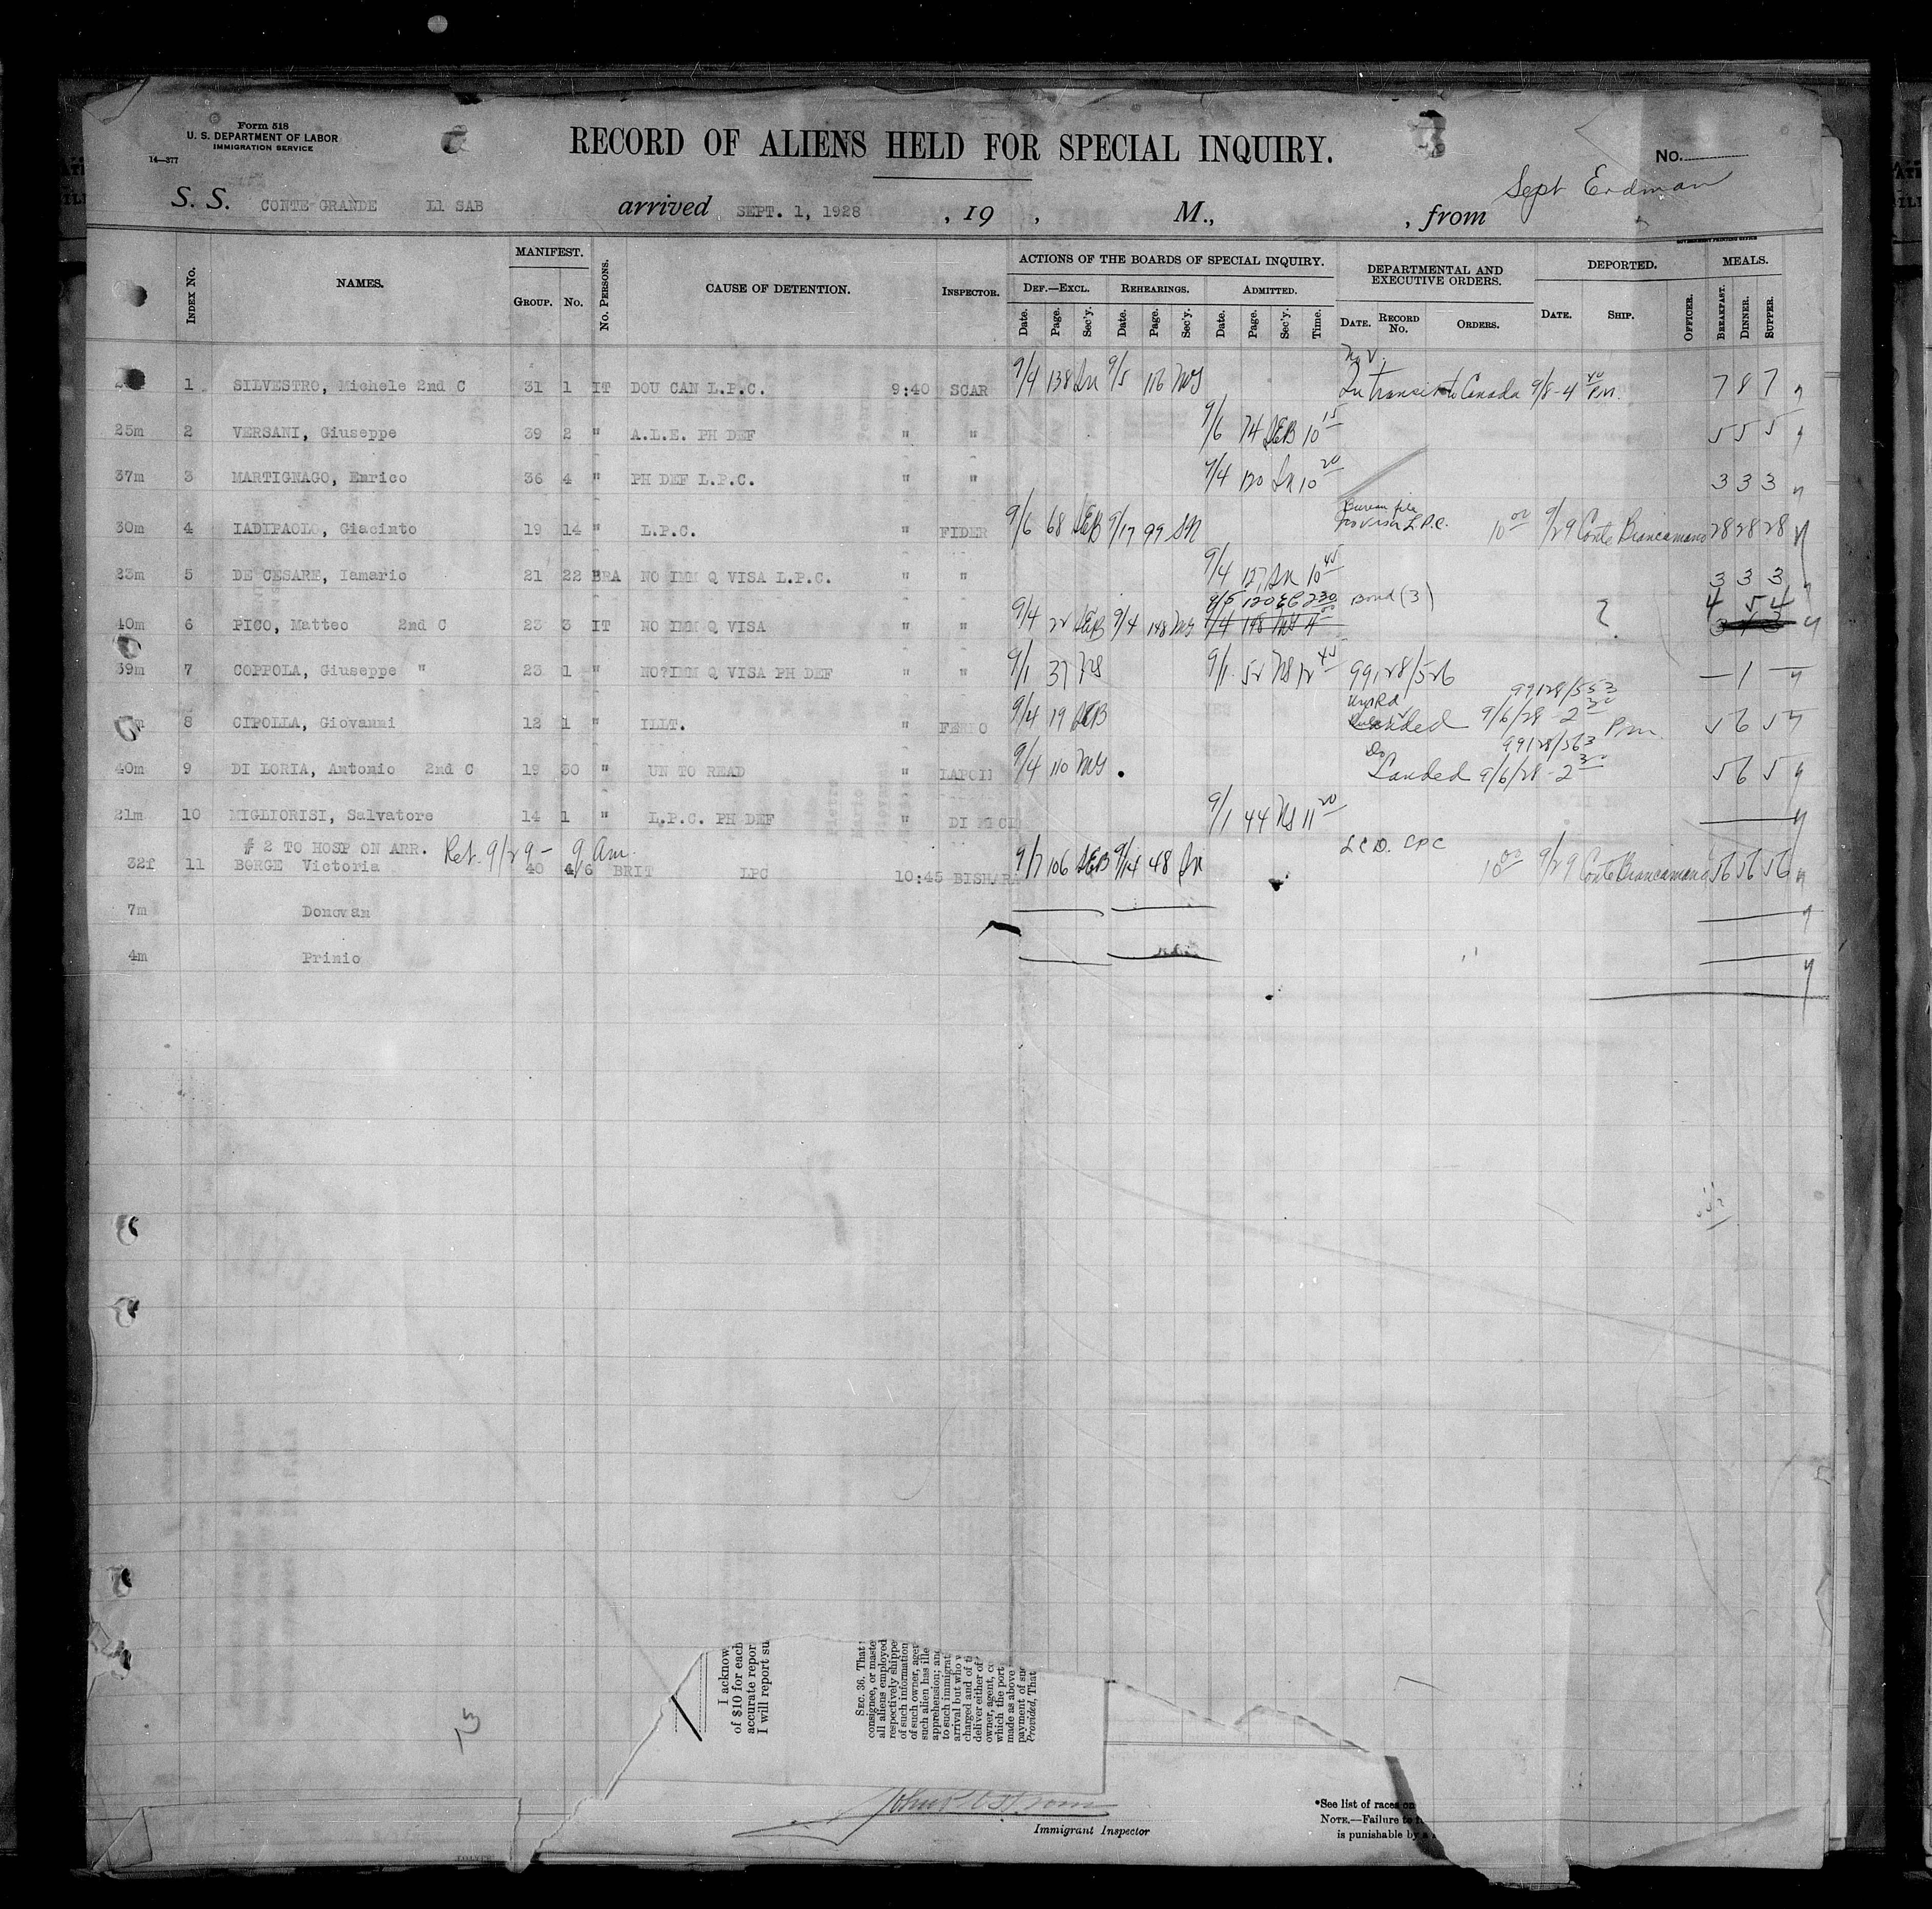 Form 518
U. S. DEPARTMENT OF LABOR
IMMIGRATION SERVICE
14—377
RECORD OF ALIENS HELD FOR SPECIAL INQUIRY.
No.
S. S. CONTE-GRANDE L1 SAB arrived SEPT. 1, 1928, 19 , M., , from Sept Erdman
GOVERNMENT PRINTING OFFICE
INDEX No. NAMES. MANIFEST. GROUP. No. No. PERSONS. CAUSE OF DETENTION. INSPECTOR. ACTIONS OF THE BOARDS OF SPECIAL INQUIRY. DEPARTMENTAL AND EXECUTIVE ORDERS. DEPORTED. MEALS.
DEF.—EXCL. REHEARINGS. ADMITTED.
Date. Page. Sec'y. Date. Page. Sec'y. Date. Page. Sec'y. Time. DATE. RECORD No. ORDERS. DATE. SHIP. OFFICER. BREAKFAST. DINNER. SUPPER.
1 SILVESTRO, Michele 2nd C 31 1 IT DOU CAN L.P.C. 9:40 SCAR 9/4 138 9/5 116 In transit to Canada 9/8-4 40 P.M. 7 8 7
25m 2 VERSANI, Giuseppe 39 2 " A.L.E. PH DEF " " 9/6 74 SEB 10 15 5 5 5
37m 3 MARTIGNAGO, Enrico 36 4 " PH DEF L.P.C. " " 9/4 120 10 20 3 3 3
30m 4 IADIPAOLO, Giacinto 19 14 " L.P.C. " FIDER 9/6 68 SEB 9/17 99 Bureau file no visa L.P.C. 10 00 9/29 Conte Biancamano 28 28 28
23m 5 DE CESARE, Iamario 21 22 BRA NO IMM Q VISA L.P.C. " " 9/4 127 10 45 3 3 3
40m 6 PICO, Matteo 2nd C 23 3 IT NO IMM Q VISA " " 9/4 22 SEB 9/4 148 9/5 120 2 30 Bond (3) ? 4 5 4
9/4 148 11
39m 7 COPPOLA, Giuseppe " 23 1 " NO?IMM Q VISA PH DEF " " 9/1 37 9/1 52 12 45 99128/526 — 1 —
8 CIPOLLA, Giovanni 12 1 " ILLT. " 9/4 19 SEB 99128/553 Landed 9/6/28 - 2 30 P.m. 5 6 5
40m 9 DI LORIA, Antonio 2nd C 19 30 " UN TO READ " 9/4 110 Do 99128/563 Landed 9/6/28 - 2 30 5 6 5
21m 10 MIGLIORISI, Salvatore 14 1 " L.P.C. PH DEF " 9/1 44 11 20
# 2 TO HOSP ON ARR. Ret. 9/29 - 9 Am.
32f 11 BORGE Victoria 40 4/6 BRIT LPC 10:45 BISHARA 9/7 106 SEB 9/14 48 10 00 9/29 Conte Biancamano 56 56 56
7m Donovan
4m Primio
13
I acknow
of $10 for each
accurate repor
I will report su
SEC. 36. That
consignee, or maste
all aliens employed
respectively shippe
of such information
of such owner, agen
such alien has ille
apprehension; and
to such immigrat
arrival but who
charged and of
deliver either of
owner, agent, co
which the port
made as above
payment of su
Provided, That
Immigrant Inspector
*See list of races on
NOTE.—Failure to
is punishable by a